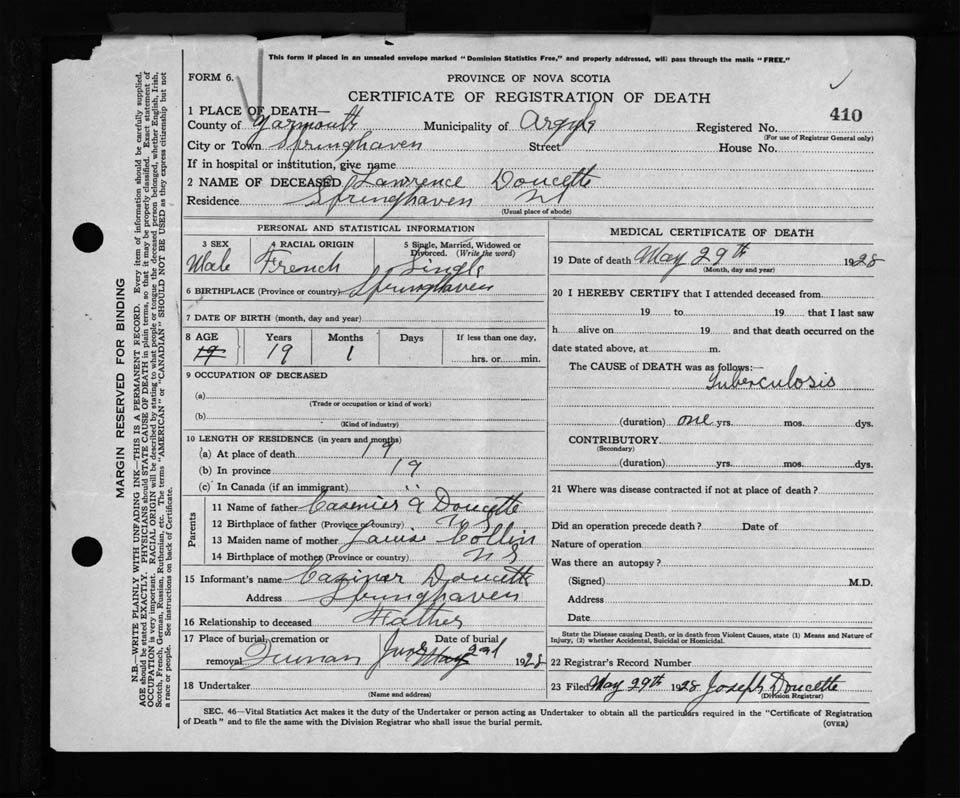 This form if placed in an unsealed envelope marked "Dominion Statistics Free," and properly addressed, will pass through the mails "FREE."
FORM 6.
PROVINCE OF NOVA SCOTIA
CERTIFICATE OF REGISTRATION OF DEATH
410
1 PLACE OF DEATH—
County of Yarmouth Municipality of Argyle Registered No.
(For use of Registrar General only)
City or Town Springhaven Street House No.
If in hospital or institution, give name
2 NAME OF DECEASED Lawrence Doucette
Residence Springhaven NS
(Usual place of abode)
PERSONAL AND STATISTICAL INFORMATION
3 SEX 4 RACIAL ORIGIN 5 Single, Married, Widowed or Divorced. (Write the word)
Male French Single
6 BIRTHPLACE (Province or country) Springhaven
7 DATE OF BIRTH (month, day and year)
8 AGE Years Months Days If less than one day,
19 19 1 hrs. or min.
9 OCCUPATION OF DECEASED
(a)
(Trade or occupation or kind of work)
(b)
(Kind of industry)
10 LENGTH OF RESIDENCE (in years and months)
(a) At place of death 19
(b) In province 19
(c) In Canada (if an immigrant) "
Parents
11 Name of father Casemier Doucette
12 Birthplace of father (Province or country) N S
13 Maiden name of mother Louise Collin
14 Birthplace of mother (Province or country) N S
15 Informant's name Casimer Doucette
Address Springhaven
16 Relationship to deceased Father
17 Place of burial, cremation or removal Date of burial
June May 2nd 1928
18 Undertaker
(Name and address)
MEDICAL CERTIFICATE OF DEATH
19 Date of death May 29th 1928
(Month, day and year)
20 I HEREBY CERTIFY that I attended deceased from
19 to 19 that I last saw
h alive on 19 and that death occurred on
date stated above, at m.
The CAUSE of DEATH was as follows:—
Tuberculosis
(duration) one yrs. mos. dys.
CONTRIBUTORY
(Secondary)
(duration) yrs. mos. dys.
21 Where was disease contracted if not at place of death?
Did an operation precede death? Date of
Nature of operation
Was there an autopsy?
(Signed) M.D.
Address
Date
State the Disease causing Death, or in death from Violent Causes, state (1) Means and Nature of
Injury, (2) whether Accidental, Suicidal or Homicidal.
22 Registrar's Record Number
23 Filed May 29th 1928 Joseph Doucette
(Division Registrar)
SEC. 46—Vital Statistics Act makes it the duty of the Undertaker or person acting as Undertaker to obtain all the particulars required in the "Certificate of Registration
of Death" and to file the same with the Division Registrar who shall issue the burial permit.
(OVER)
MARGIN RESERVED FOR BINDING
N.B.—WRITE PLAINLY WITH UNFADING INK—THIS IS A PERMANENT RECORD. Every item of information should be carefully supplied.
AGE should be stated EXACTLY. PHYSICIANS should STATE CAUSE OF DEATH in plain terms, so that it may be properly classified. Exact statement of
OCCUPATION is very important. RACIAL ORIGIN will be described by stating to what people or tongue the deceased person belonged, whether English, Irish,
Scotch, French, German, Russian, Ruthenian, etc. The terms "AMERICAN" or "CANADIAN" SHOULD NOT BE USED as they express citizenship but not
a race or people. See instructions on back of Certificate.